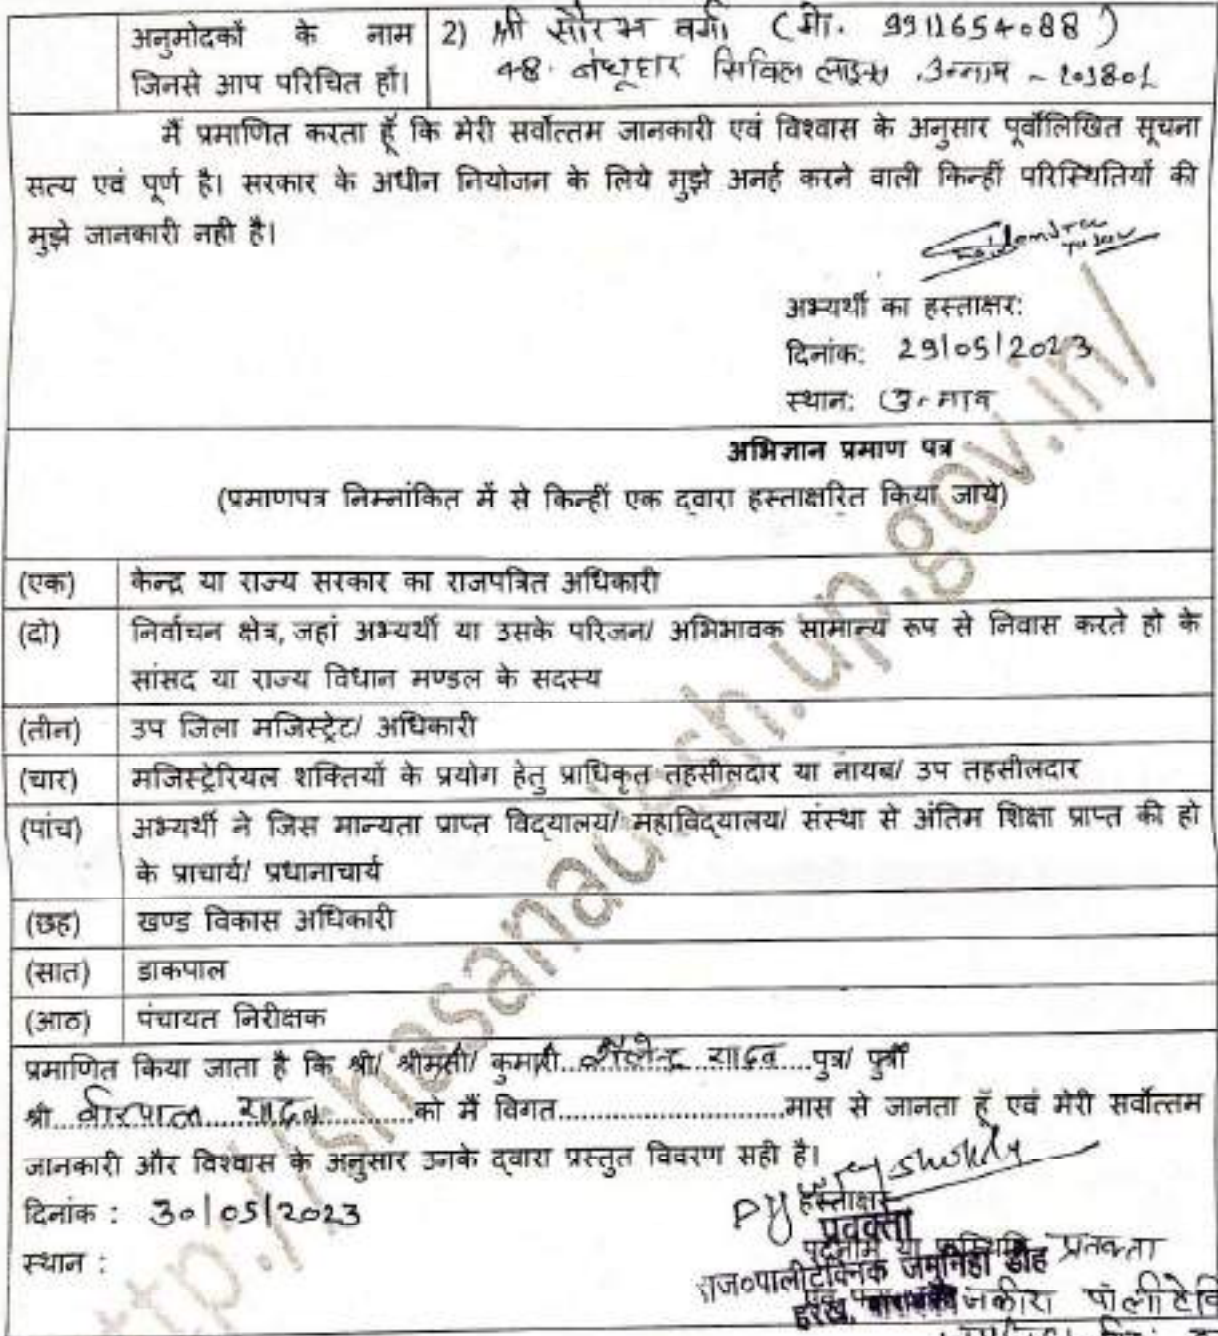 अनुमोदकों के नाम
जिनसे आप परिचित हों।
2) श्री सौरभ वर्मा (मो. 9911654088)
48. सिविल लाइन्स, उन्नाव -
मैं प्रमाणित करता हूँ कि मेरी सर्वोत्तम जानकारी एवं विश्वास के अनुसार पूर्वोलिखित सूचना
सत्य एवं पूर्ण है। सरकार के अधीन नियोजन के लिये मुझे अनर्ह करने वाली किन्हीं परिस्थितियों की
मुझे जानकारी नही है।
अभ्यर्थी का हस्ताक्षर:
दिनांक: 29/05/2023
स्थान: उन्नाव
अभिज्ञान प्रमाण पत्र
(प्रमाणपत्र निम्नांकित में से किन्हीं एक द्वारा हस्ताक्षरित किया जाये)
(एक) केन्द्र या राज्य सरकार का राजपत्रित अधिकारी
(दो) निर्वाचन क्षेत्र, जहां अभ्यर्थी या उसके परिजन/ अभिभावक सामान्य रूप से निवास करते हो के
सांसद या राज्य विधान मण्डल के सदस्य
(तीन) उप जिला मजिस्ट्रेट/ अधिकारी
(चार) मजिस्ट्रेरियल शक्तियों के प्रयोग हेतु प्राधिकृत तहसीलदार या नायब/ उप तहसीलदार
(पांच) अभ्यर्थी ने जिस मान्यता प्राप्त विद्यालय/ महाविद्यालय/ संस्था से अंतिम शिक्षा प्राप्त की हो
के प्राचार्य/ प्रधानाचार्य
(छह) खण्ड विकास अधिकारी
(सात) डाकपाल
(आठ) पंचायत निरीक्षक
प्रमाणित किया जाता है कि श्री/ श्रीमती/ कुमारी..शैलेन्द्र यादव...पुत्र/ पुत्री
श्री...वीरपाल यादव...को मैं विगत...मास से जानता हूँ एवं मेरी सर्वोत्तम
जानकारी और विश्वास के अनुसार उनके द्वारा प्रस्तुत विवरण सही है।
दिनांक : 30/05/2023
हस्ताक्षर
प्रवक्ता
स्थान :
पदनाम या प्रास्थिति प्रवक्ता
राज०पालीटेक्निक जमुनिहा डीह
हरख,
http://shasanadesh.up.gov.in/